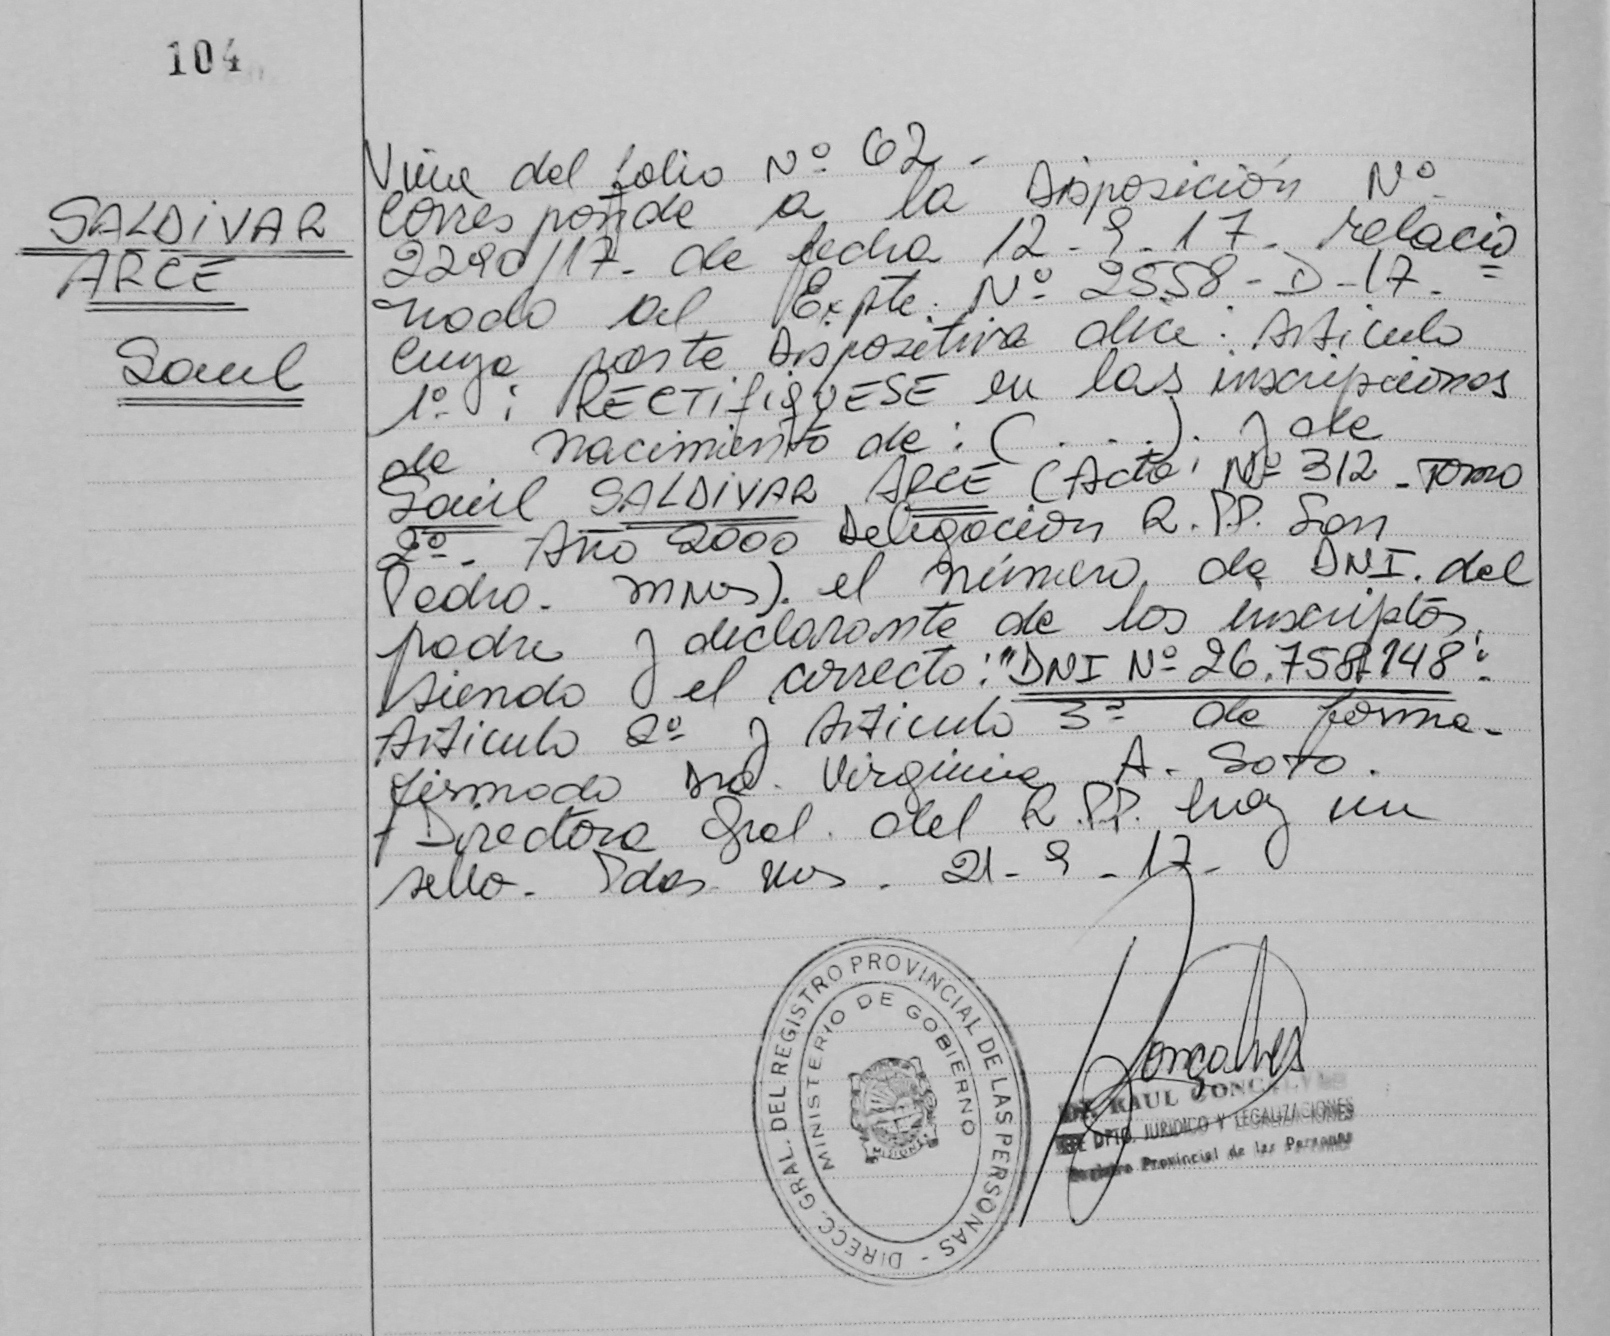 104
SALDIVAR
ARCE
Saul
Viene del folio Nº 62.-
Corresponde a la Disposición Nº
2290/17. de fecha 12-9-17. relacio
nado al Expte. Nº 2558-D-17.
cuya parte Dispositiva dice: Artículo
1º: RECTIFIQUESE en las inscripciones
de nacimiento de: (....). y de
Saúl SALDIVAR ARCE (Acta Nº 312 - Tomo
2º- Año 2000 Delegación R.PP. San
Pedro. Mnes). el número de DNI. del
padre y declarante de los inscriptos,
siendo el correcto: "DNI Nº 26.758.148":
Artículo 2º y Artículo 3º de forma.-
firmado Dra. Virginia A. Soto.
Directora Gral. del R.PP. hay un
sello. Pdas Mnes. 21-9-17-
DIRECC. GRAL. DEL REGISTRO PROVINCIAL DE LAS PERSONAS -
MINISTERIO DE GOBIERNO
MISIONES
Goncalves
RAUL GONCALVES
DPTO. JURIDICO Y LEGALIZACIONES
Registro Provincial de las Personas